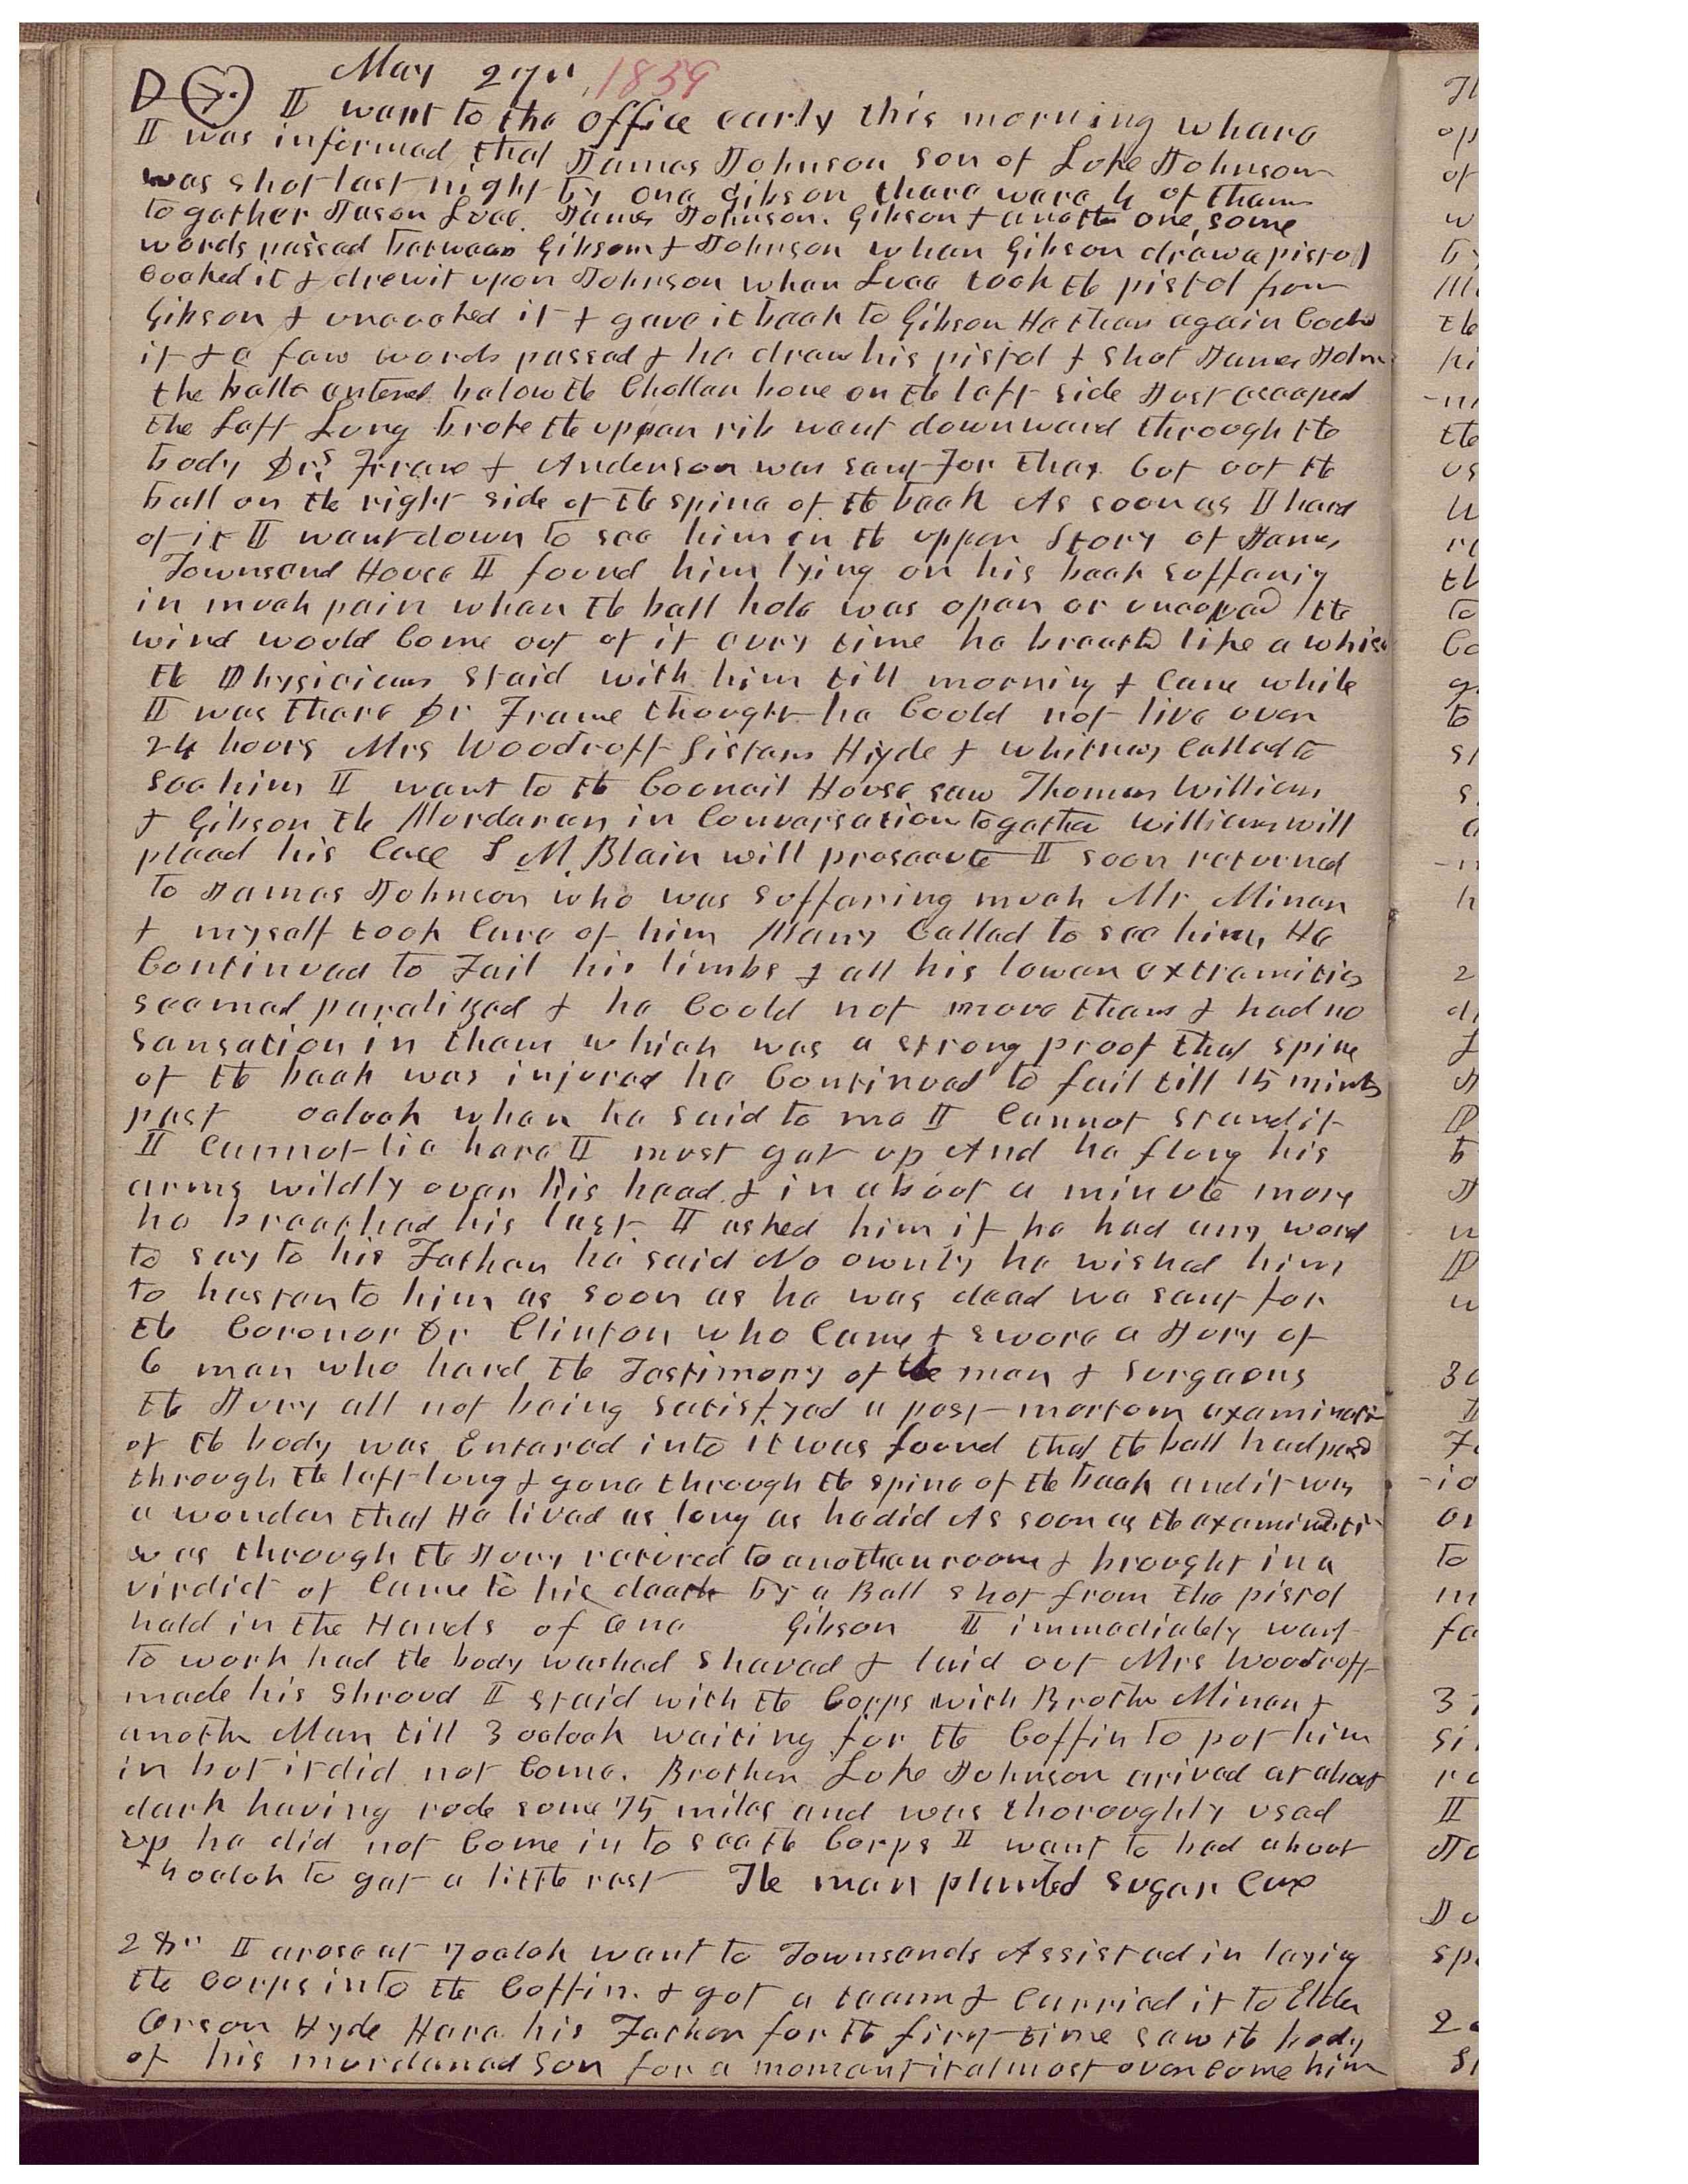 May 27th, 1859
D I went to the office early this morning whare
I was informed that James Johnson son of Luke Johnson
was shot last night by one Gibson thare ware 4 of them
together Jason Luce. James Johnson. Gibson & another one, some
words passed between Gibson & Johnson when Gibson drew a pistol
cocked it & drew it upon Johnson when Luce took the pistol from
Gibson & uncocked it & gave it back to Gibson He then again Cockd
it & a few words passed & he drew his pistol & shot James Johns
the balle entered below the Choller bone on the left side Just escaped
the Left Lung broke the upper rib went downward through the
body Drs Frame & Anderson was sent for they Cut out the
ball on the right side of the spine of the back As soon as I hard
of it I went down to see him in the upper Story of James
Townsend House I found him lying on his back suffering
in much pain when the ball hole was open or uncoverd the
wind would Come out of it evry time he breathd like a whise
the Physicians staid with him till morning & Came while
I was there Dr Frame thought he Could not live over
24 hours Mrs Woodruff Sisters Hyde & Whitney Called to
see him I went to the Council House saw Thomas Williams
& Gibson the Murderer in Conversation together Williams will
plead his Case S M. Blair will prosecute I soon returned
to James Johnson who was suffering much Mr Miner
& myself took Care of him Many Called to see him, He
Continued to Fail his limbs & all his lower extremities
seemed paralized & he Could not move them & had no
sensation in them which was a strong proof that spine
of the back was injured he Continued to fail till 15 minuts
past oclock when he said to me I Cannot stand it
I Cannot lie here I must get up And he flung his
arms wildly over his head & in about a minute more
he breathed his last I asked him if he had any word
to say to his Father he said No ownly he wished him
to hasten to him as soon as he was dead we sent for
the Coroner Dr Clinton who Came & swore a Jury of
6 men who hard the Testimony of the men & surgeons
the Jury all not being satisfyed a post mortem examinati
of the body was Entered into it was found that the ball had passd
through the left lung & gone through the spine of the back and it was
a wonder that He lived as long as he did As soon as the examinati
was through the Jury retired to another room & brought in a
virdict of Came to his death by a Ball shot from the pistol
held in the Hands of one Gibson I immediately went
to work had the body washed shaved & laid out Mrs Woodruff
made his Shroud I staid with the Corps with Brother Miner &
another Man till 3 oclock waiting for the Coffin to put him
in but it did not Come. Brother Luke Johnson arived at about
dark having rode some 75 miles and was thoroughly used
up he did not Come in to see the Corps I went to bed about
4 oclok to get a little rest The men planted Sugar Cane

28" I arose at 7 oclok went to Townsends Assisted in laying
the Corps into the Coffin. & got a teem & Carried it to Elder
Orson Hyde Here his Father for the first time saw the body
of his murdered son for a moment it almost overcome him